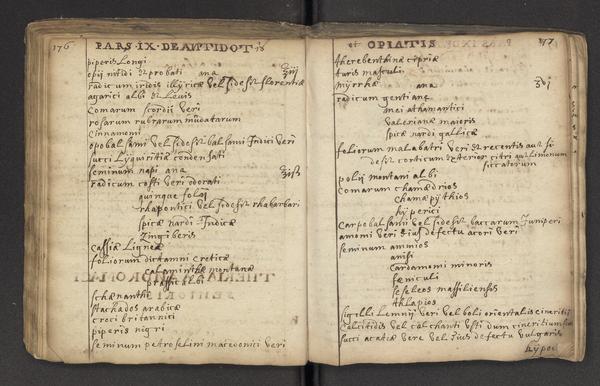 176 PARS · IX · DE ANTIDOTIS
piperis Longi
opii nitidi et probati ana ʒiij
radicum iridis illyricæ vel si desit florentiæ
agarici albi et Levis
Comarum scordii veri
rosarum rubrarum mundatarum
Cinnamomi
opobalsami vel si desit balsami Indici veri
succi Lyquiritiæ condensati
seminum napi ana
radicum costi veri odorati
quinque folii
rhapontici vel si desit rhabarbari
spicæ nardi Indicæ
Zingiberis
Cassiæ Ligneæ
foliorum dictamni creticæ
calaminthæ montanæ
prassii albi
schænanthi
stæchados arabicæ
croci britannici
piperis nigri
seminum petroselini macedonici veri
et OPIATIS 177
therebenthinæ cypriæ
turis masculi
myrrhæ ana
radicum gentianæ
mei athamantici
valerianæ maioris
spicæ nardi gallicæ
foliorum malabatri veri et recentis aut si
desit corticum exterior citri aut limonum
siccatorum
polii montani albi
Comarum chamædrios
chamæpythios
hyperici
Carpobalsami vel si desit baccarum Juniperi
amomi veri et eius defectu acori veri
seminum ammios
anisi
Cardamomi minoris
fæniculi
seseleos massiliensis
thlapios
sigilli Lemnii veri vel boli orientalis
Calcitidis vel calchanti usti dum
succi acatiæ veræ vel eius defectu vulgaris
hypoc